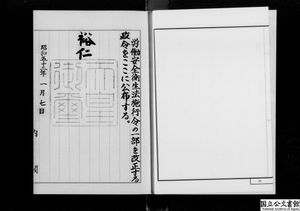 労働安全衛生法施行令の一部を改正する
政令をここに公布する。
裕仁
昭和五十三年一月七日
内閣
国立公文書館
National Archives of Japan